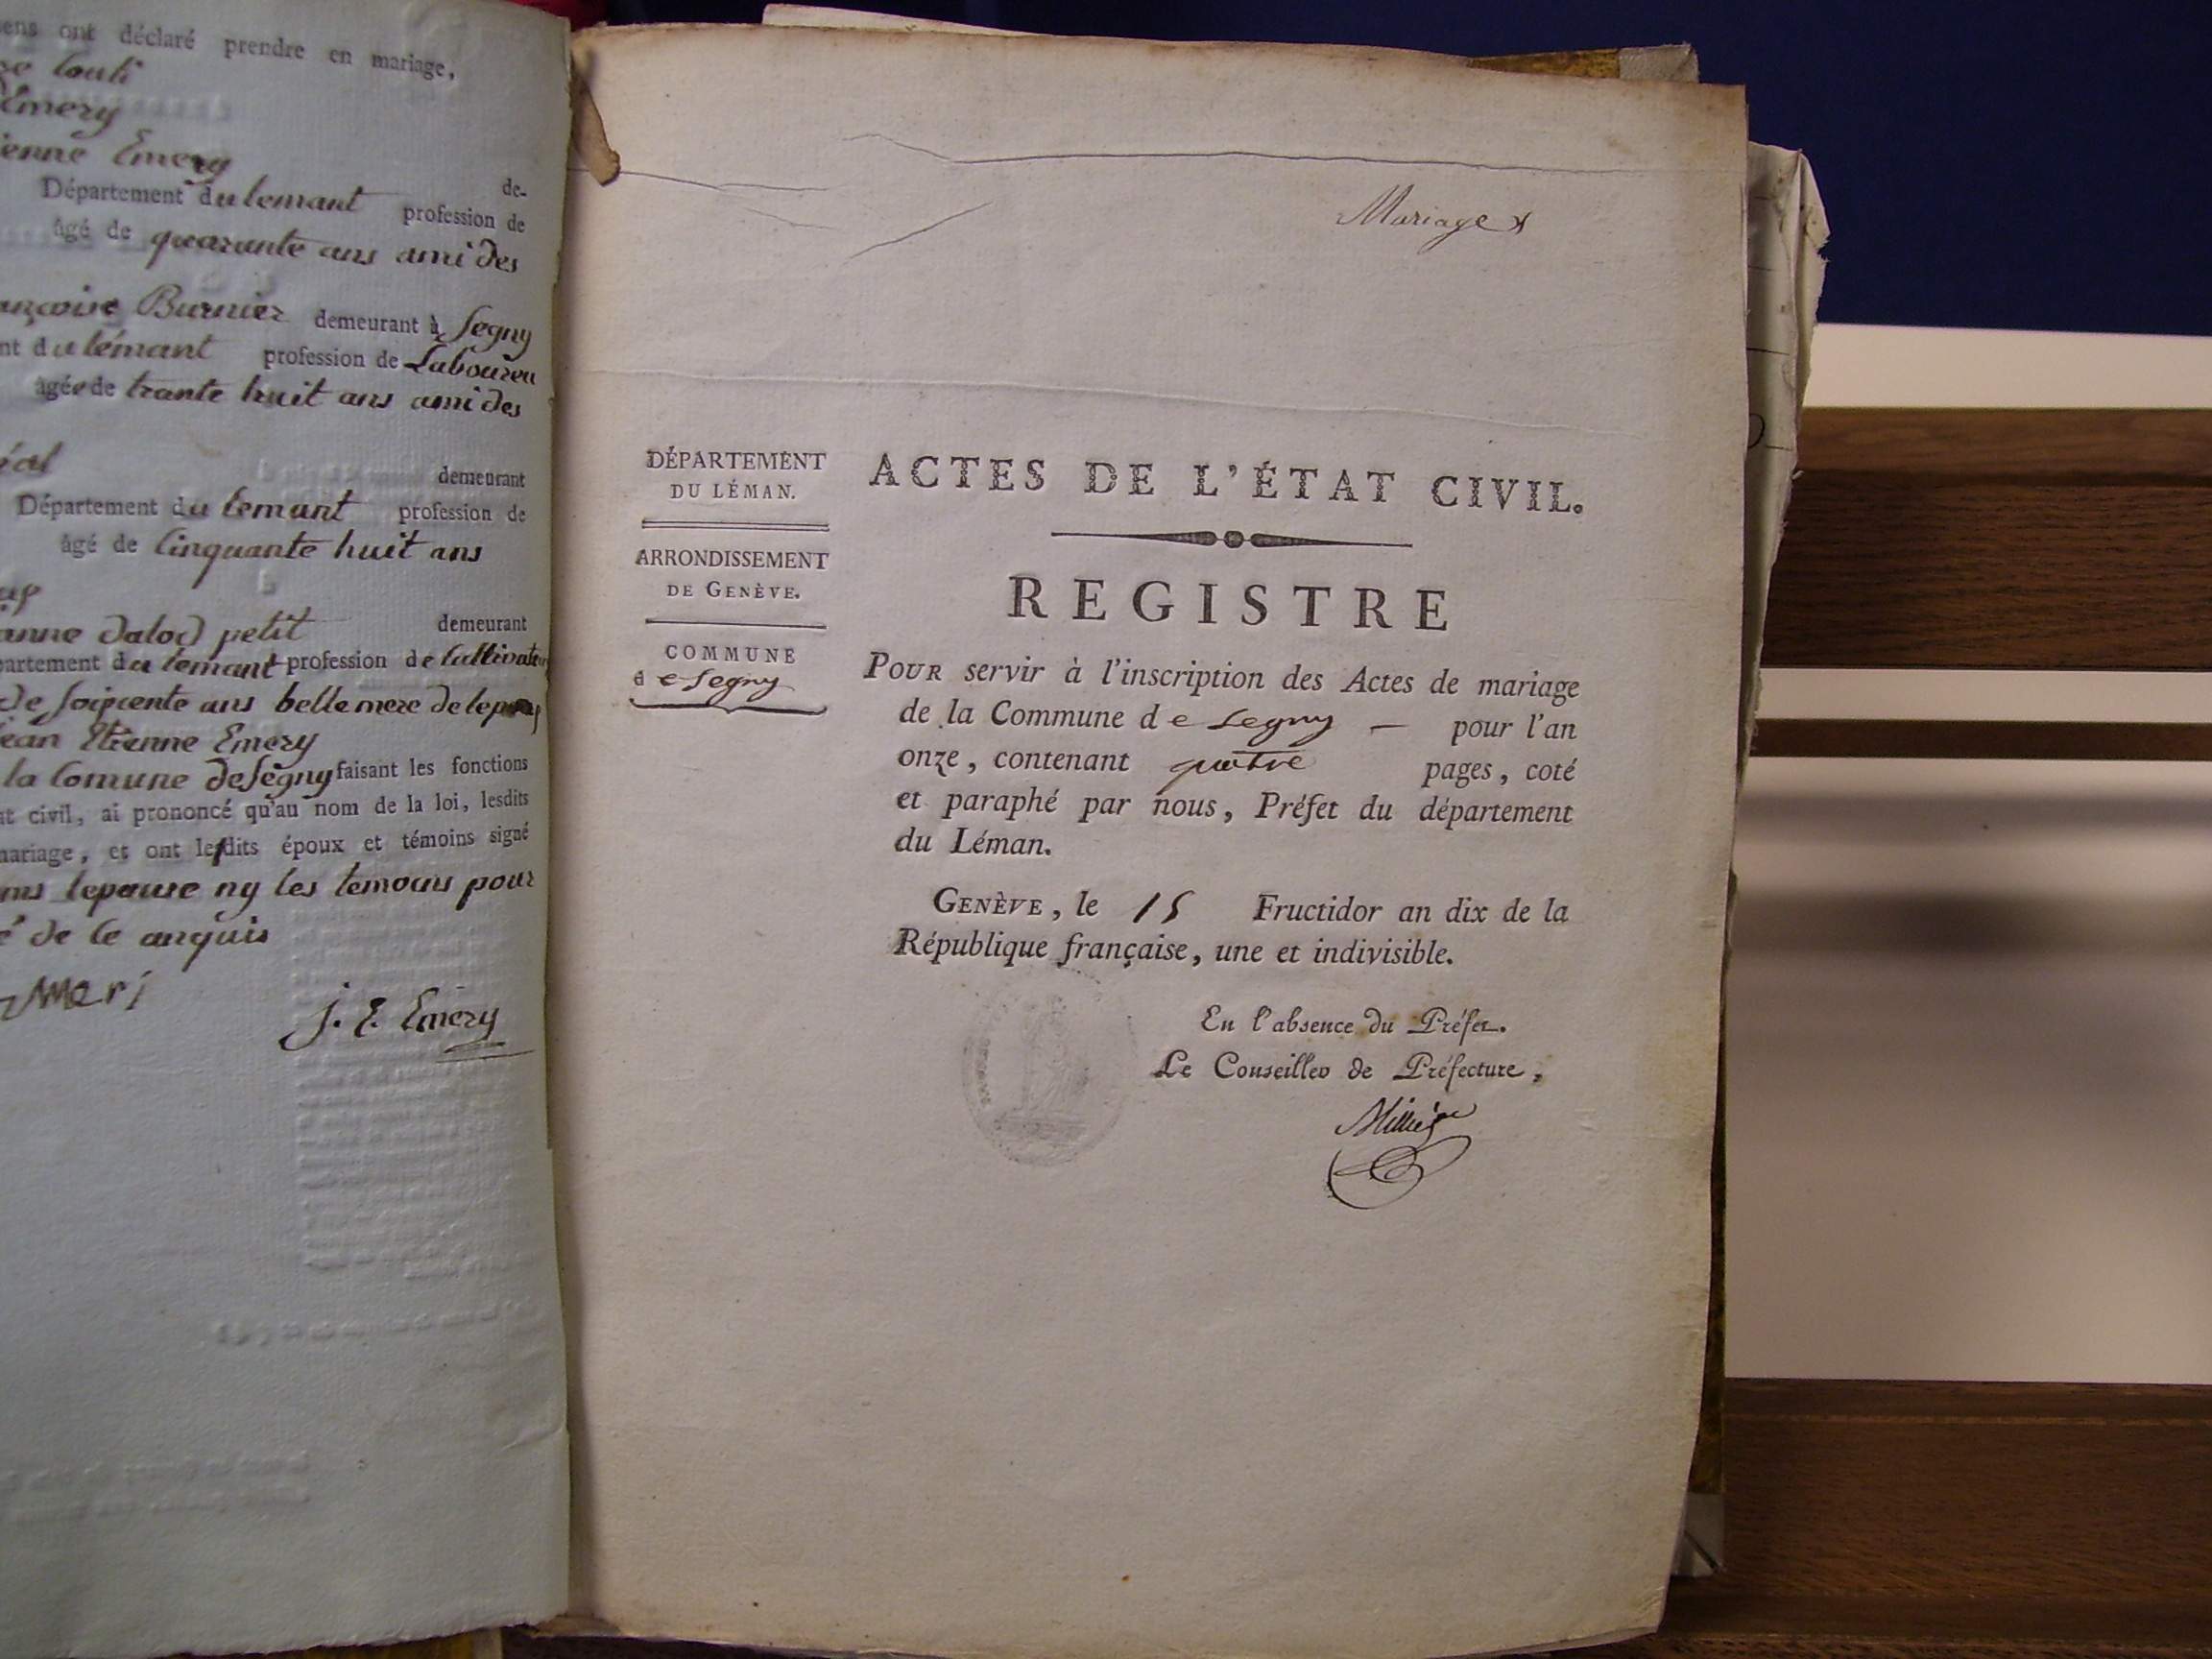 ens ont déclaré prendre en mariage,
Emery
ienne Emery
de-
Département du lemant profession de
âgé de quarante ans ami des
ançoise Burnier demeurant à Segny
nt du lémant profession de Laboureu
âgée de trante huit ans ami des
demeurant
Département du lemant profession de
âgé de Cinquante huit ans
anne dalod petit demeurant
partement du lemant profession de Cultivateur
de soixente ans belle mere de
jean Etienne Emery
la Comune de Segny faisant les fonctions
at civil, ai prononcé qu'au nom de la loi, lesdits
mariage, et ont lesdits époux et témoins signé
lepouse ny les temoins pour
é de ce anquis
Meri
J. E. Emery
Mariages
DÉPARTEMENT
DU LÉMAN.
ARRONDISSEMENT
DE GENÈVE.
COMMUNE
de Segny
ACTES DE L'ÉTAT CIVIL.
REGISTRE
POUR servir à l'inscription des Actes de mariage
de la Commune de Segny — pour l'an
onze, contenant quatre pages, coté
et paraphé par nous, Préfet du département
du Léman.
GENÈVE, le 15 Fructidor an dix de la
République française, une et indivisible.
En l'absence du Préfet.
Le Conseiller de Préfecture,